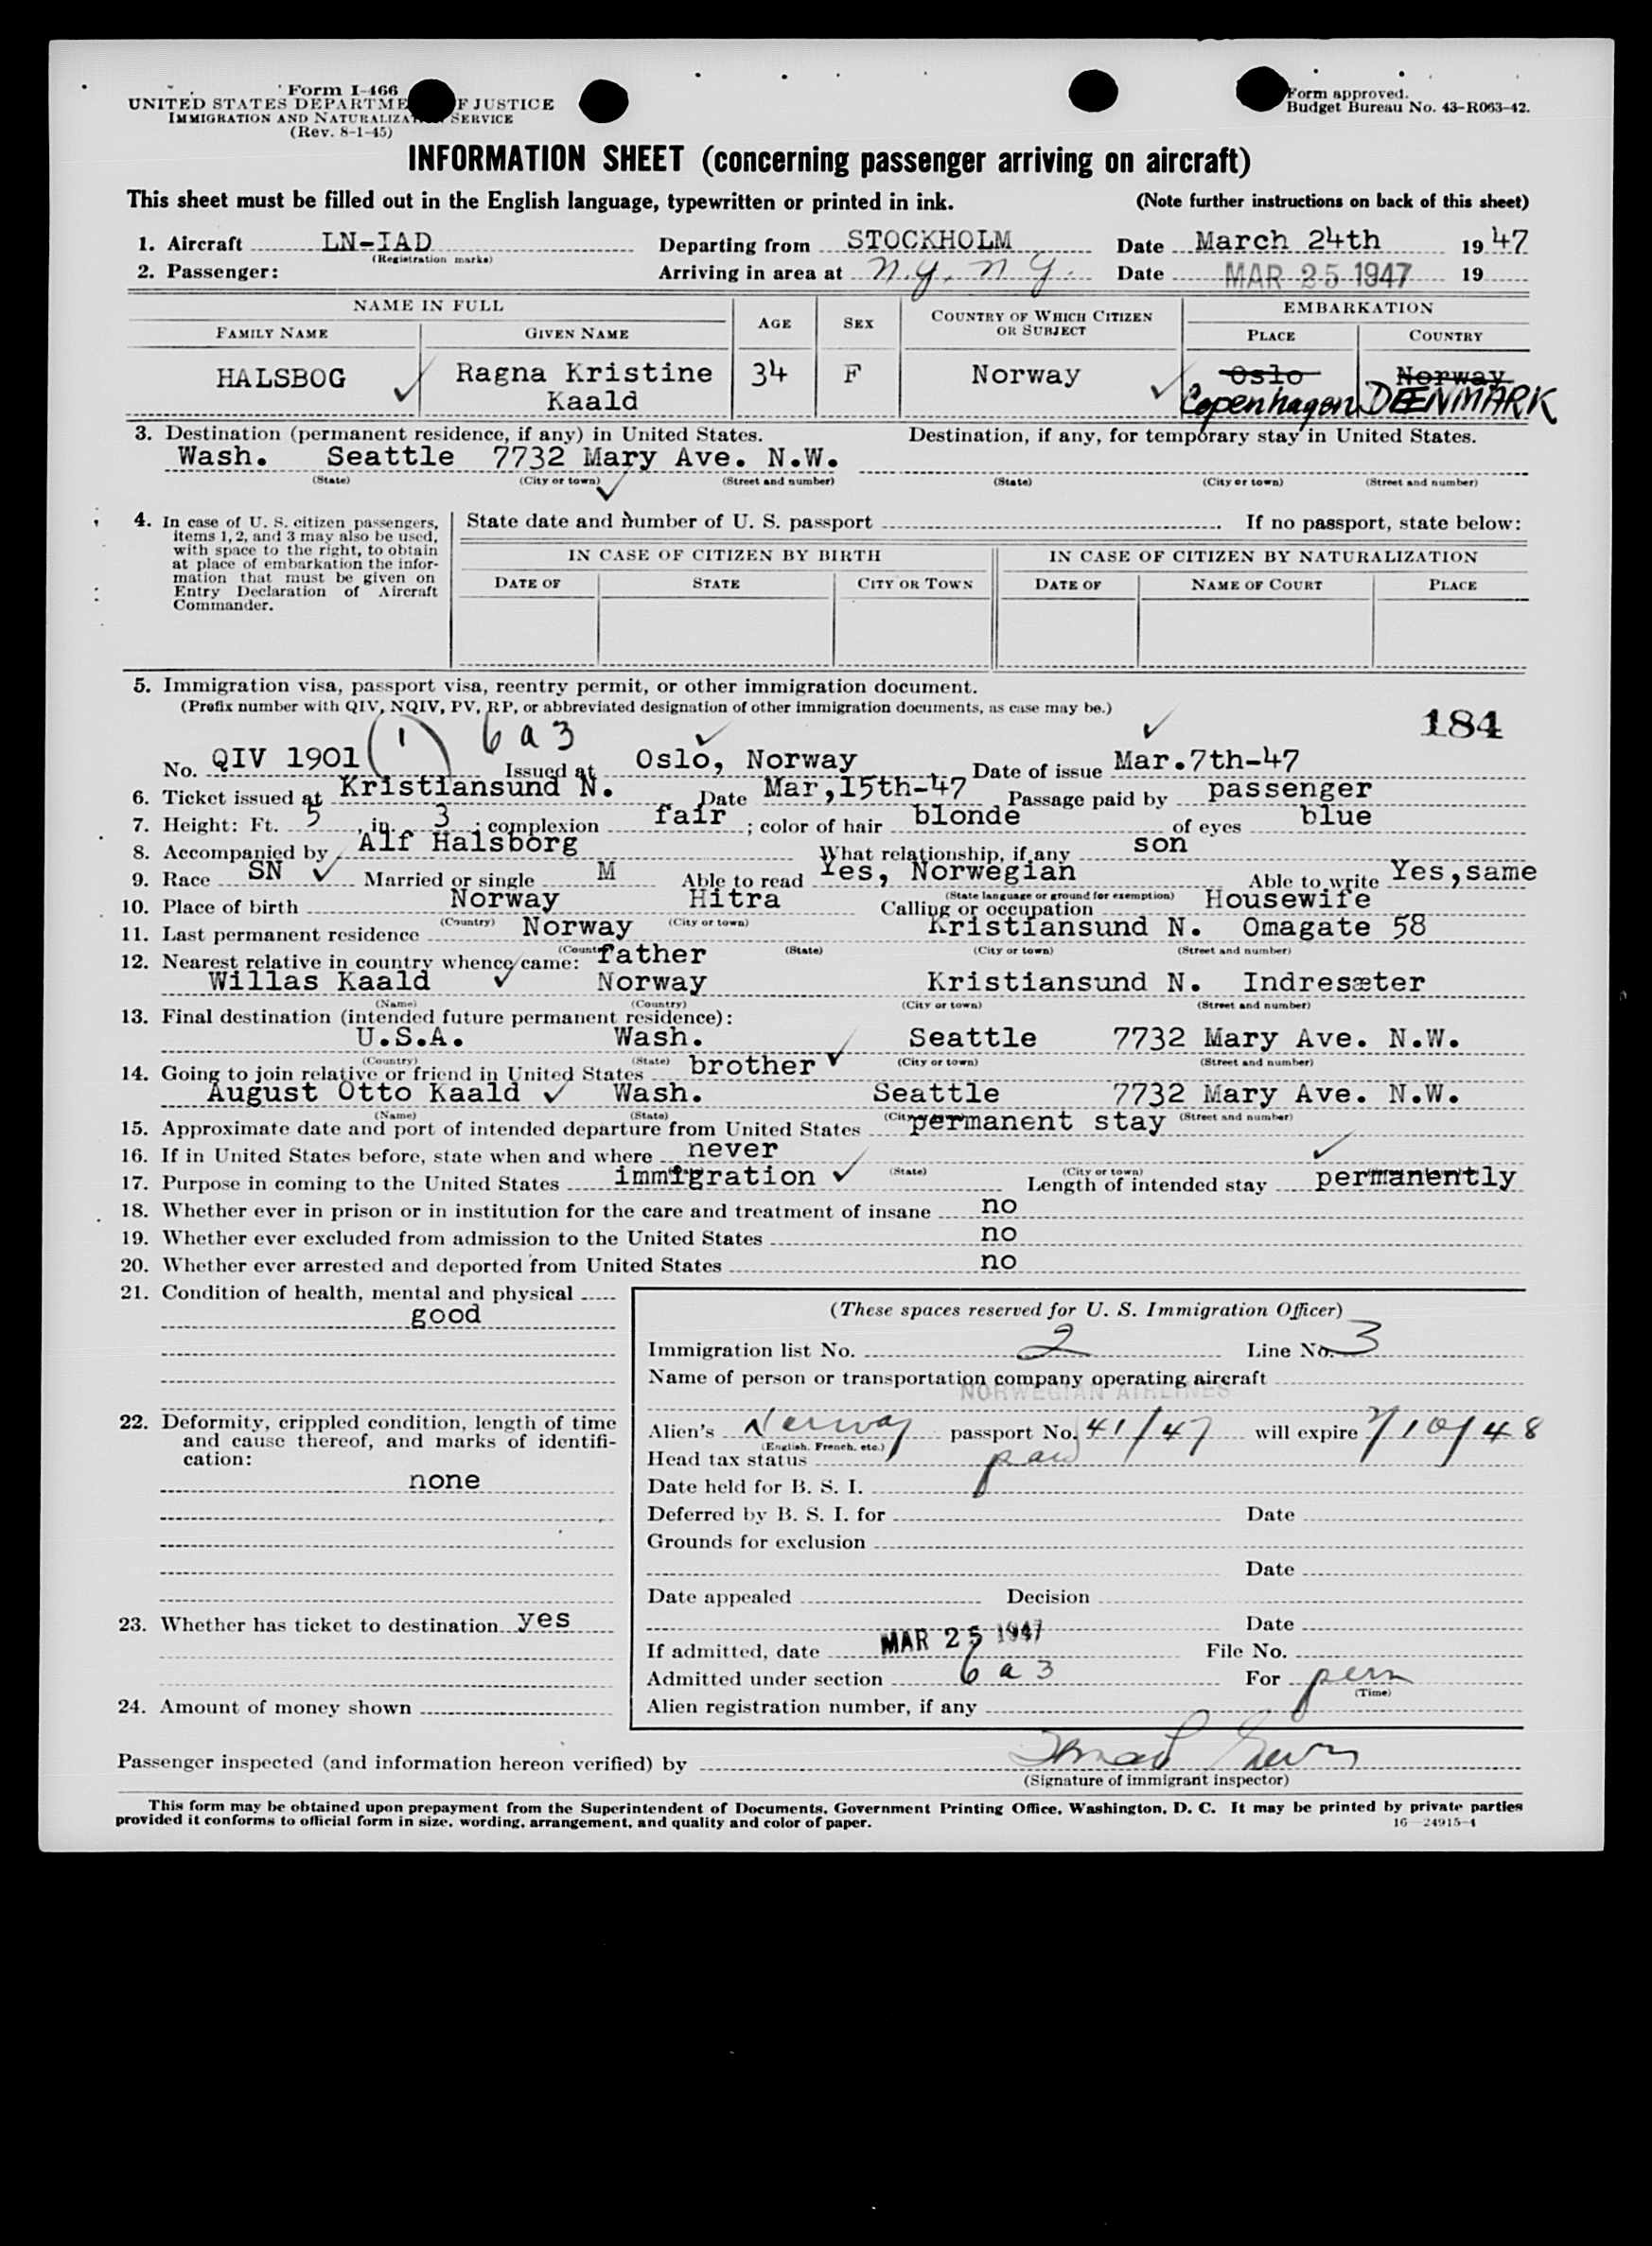 Form I-466
UNITED STATES DEPARTME F JUSTICE
IMMIGRATION AND NATURALIZAT SERVICE
(Rev. 8-1-45)
Form approved.
Budget Bureau No. 43-R063-42.
INFORMATION SHEET (concerning passenger arriving on aircraft)
This sheet must be filled out in the English language, typewritten or printed in ink. (Note further instructions on back of this sheet)
1. Aircraft LN-IAD Departing from STOCKHOLM Date March 24th 19 47
(Registration marks)
2. Passenger: Arriving in area at N.Y. N Y. Date MAR 25 1947 19
NAME IN FULL AGE SEX COUNTRY OF WHICH CITIZEN OR SUBJECT EMBARKATION
FAMILY NAME GIVEN NAME PLACE COUNTRY
HALSBOG Ragna Kristine 34 F Norway Oslo Norway
Kaald Copenhagen DÆNMARK
3. Destination (permanent residence, if any) in United States. Destination, if any, for temporary stay in United States.
Wash. Seattle 7732 Mary Ave. N.W.
(State) (City or town) (Street and number) (State) (City or town) (Street and number)
4. In case of U. S. citizen passengers, items 1, 2, and 3 may also be used, with space to the right, to obtain at place of embarkation the information that must be given on Entry Declaration of Aircraft Commander.
State date and number of U. S. passport If no passport, state below:
IN CASE OF CITIZEN BY BIRTH IN CASE OF CITIZEN BY NATURALIZATION
DATE OF STATE CITY OR TOWN DATE OF NAME OF COURT PLACE
5. Immigration visa, passport visa, reentry permit, or other immigration document.
(Prefix number with QIV, NQIV, PV, RP, or abbreviated designation of other immigration documents, as case may be.)
184
(1) 6 a 3
No. QIV 1901 Issued at Oslo, Norway Date of issue Mar.7th-47
6. Ticket issued at Kristiansund N. Date Mar,15th-47 Passage paid by passenger
7. Height: Ft. 5, in. 3; complexion fair; color of hair blonde of eyes blue
8. Accompanied by Alf Halsborg What relationship, if any son
9. Race SN Married or single M Able to read Yes, Norwegian Able to write Yes,same
(State language or ground for exemption)
10. Place of birth Norway Hitra Calling or occupation Housewife
(Country) (City or town)
11. Last permanent residence Norway Kristiansund N. Omagate 58
(Country) (State) (City or town) (Street and number)
12. Nearest relative in country whence came: father
Willas Kaald Norway Kristiansund N. Indresæter
(Name) (Country) (City or town) (Street and number)
13. Final destination (intended future permanent residence):
U.S.A. Wash. Seattle 7732 Mary Ave. N.W.
(Country) (State) (City or town) (Street and number)
14. Going to join relative or friend in United States brother
August Otto Kaald Wash. Seattle 7732 Mary Ave. N.W.
(Name) (State) (City or town) (Street and number)
15. Approximate date and port of intended departure from United States permanent stay
16. If in United States before, state when and where never
(State) (City or town)
17. Purpose in coming to the United States immigration Length of intended stay permanently
18. Whether ever in prison or in institution for the care and treatment of insane no
19. Whether ever excluded from admission to the United States no
20. Whether ever arrested and deported from United States no
21. Condition of health, mental and physical
good
22. Deformity, crippled condition, length of time and cause thereof, and marks of identification:
none
23. Whether has ticket to destination yes
24. Amount of money shown
(These spaces reserved for U. S. Immigration Officer)
Immigration list No. 2 Line No. 3
Name of person or transportation company operating aircraft
NORWEGIAN AIRLINES
Alien's Norway passport No. 41/47 will expire 2/10/48
(English, French, etc.)
Head tax status paid
Date held for B. S. I.
Deferred by B. S. I. for Date
Grounds for exclusion
Date
Date appealed Decision
Date
If admitted, date MAR 25 1947 File No.
Admitted under section 6 a 3 For perm
(Time)
Alien registration number, if any
Passenger inspected (and information hereon verified) by
(Signature of immigrant inspector)
This form may be obtained upon prepayment from the Superintendent of Documents, Government Printing Office, Washington, D. C. It may be printed by private parties
provided it conforms to official form in size, wording, arrangement, and quality and color of paper. 16—24915-1